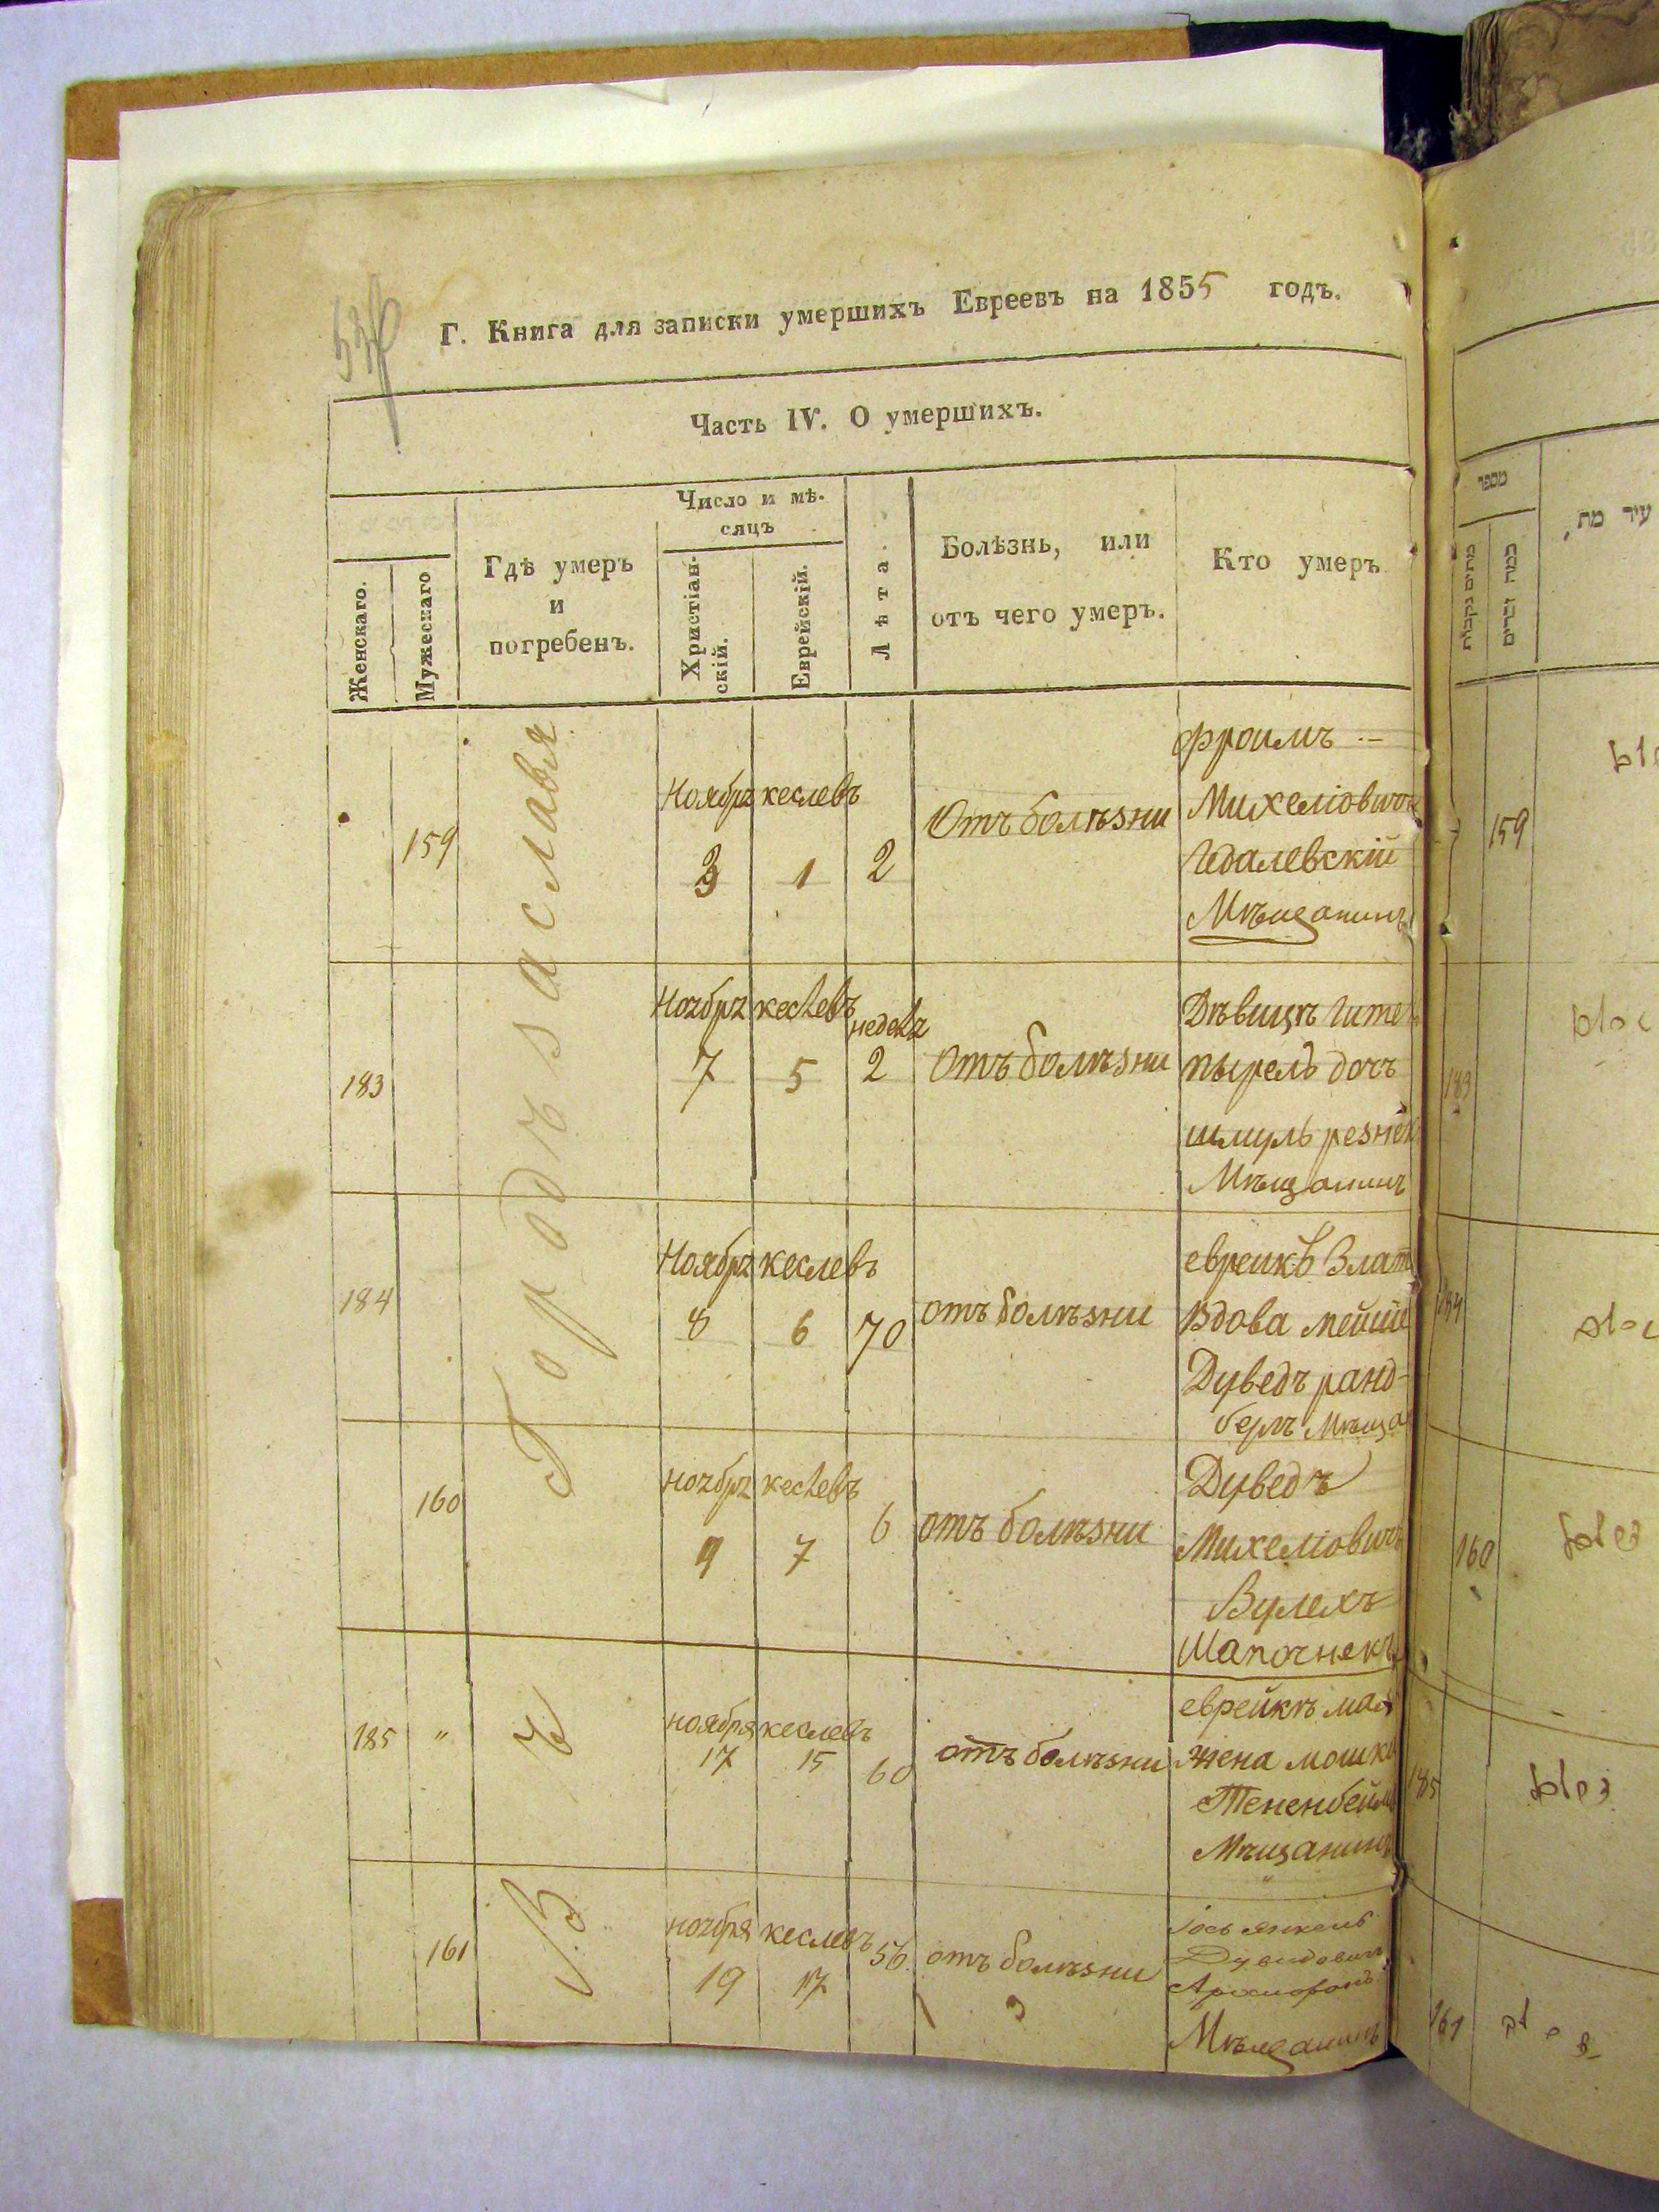 Г. Книга для записки умершихъ Евреевъ на 1855 годъ.
Часть IV. О умершихъ.
Женскаго.
Мужескаго
Гдѣ умеръ
и
погребенъ.
Число и мѣ-
сяцъ
Христіан-
скій.
Еврейскій.
Лѣта.
Болѣзнь, или
отъ чего умеръ.
Кто умеръ
Въ Городѣ Заславля
159
Ноябрь кеслевъ
3 1 2
Отъ болѣзни
Фроимъ
Михеліовичъ
Гдалевскій
Мѣщанинъ
183
Ноября кеслевъ
неделя
7 5 2
Отъ болѣзни
Дѣвицѣ Гитель
пырель дочъ
шмуль резнек
Мѣщанинъ
184
Ноября кеслевъ
8 6 70
отъ болѣзни
еврейкѣ Злат
Вдова
Дуведъ ранд-
берлъ Мѣща
160
ноября кеслевъ
9 7 6
отъ болѣзни
Дуведъ
Михеліовичъ
Вулехъ
Шапочнекъ
185 "
ноября кеслевъ
17 15 60
отъ болѣзни
еврейкѣ мал
жена мошк
Тененбейм
Мѣщанинъ
161
ноября кеслевъ
19 17 56
отъ болѣзни
Іось янкель
Дувидовичъ
Мѣщанинъ
מספר
עיר מת
159
183
184
160
185
161